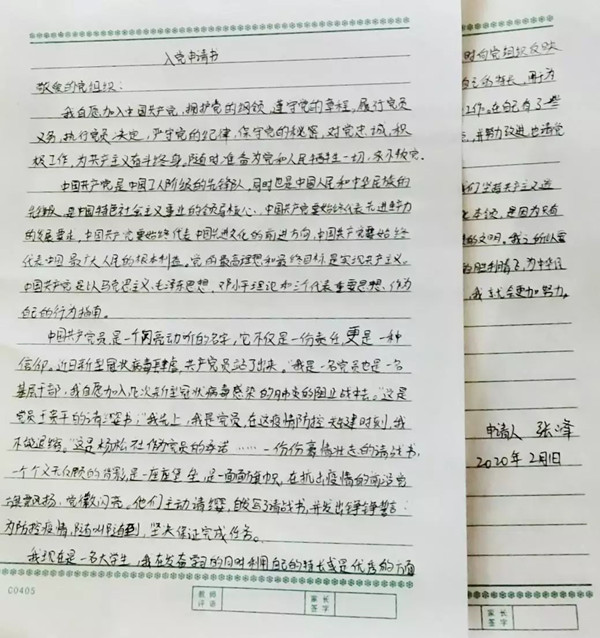 入党申请书
敬爱的党组织：
我自愿加入中国共产党，拥护党的纲领，遵守党的章程，履行党员
义务，执行党员决定，严守党的纪律，保守党的秘密，对党忠诚，积
极工作，为共产主义奋斗终身，随时准备为党和人民牺牲一切，永不叛党。
中国共产党是中国工人阶级的先锋队，同时也是中国人民和中华民族的
先锋队，是中国特色社会主义事业的领导核心，中国共产党要始终代表先进生产力
的发展要求，中国共产党要始终代表中国先进文化的前进方向，中国共产党要始终
代表中国最广大人民的根本利益。党的最高理想和最终目标是实现共产主义。
中国共产党是以马克思主义、毛泽东思想，邓小平理论和三个代表重要思想，作为
自己的行为指南。
中国共产党员是一个闪亮动听的名字，它不仅是一份责任更是一种
信仰。近日新型冠状病毒肆虐，共产党员站了出来。“我是一名党员也是一名
基层干部，我自愿加入此次新型冠状病毒感染的肺炎的阻击战中去。”这是
党员的请缨书；“我先上，我是党员，在这疫情防控关键时刻，我
不能退缩。”这是作为党员的承诺……一份份豪情壮志的请战书，
一个个义无反顾的背影，是一座座堡垒，是一面面旗帜，在抗击疫情的前沿党
旗飘扬，党徽闪亮，他们主动请缨，自发写了请战书，并发出铮铮誓言：
为防控疫情，随叫随到，坚决保证完成任务。
我现在是一名大学生，我在发奋学习的同时利用自己的特长或是优秀的方面
C0405
教师评语
家长签字
时向党组织反映
自己的特长，用于为
工作。在自己有了一些
，并努力改进，也请党
们坚持共产主义道
是因为只有
的文明，我之所以要
的胜利随了，为中华民
，我就会更加努力。
申请人 张峰
2020年2月1日
家长签字